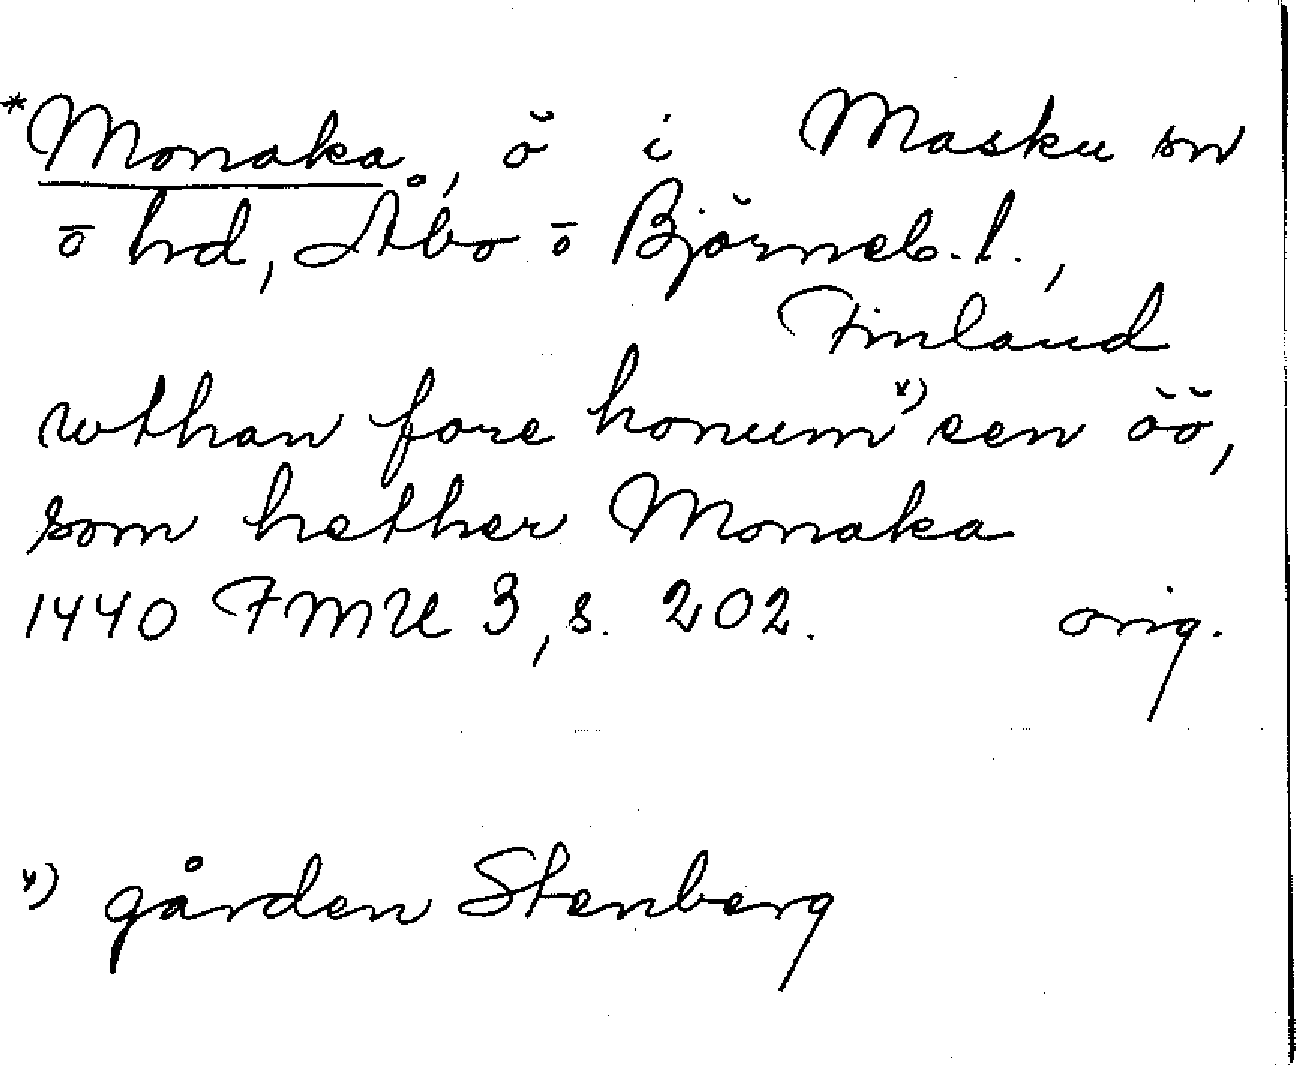 *Monaka, ö i Masku sn
o hd, Åbo o Björneb. l.,
Finland
wthan fore honum x) een öö,
som hether Monaka
1440 FMU 3, s. 202. orig.
x) gården Stenberg